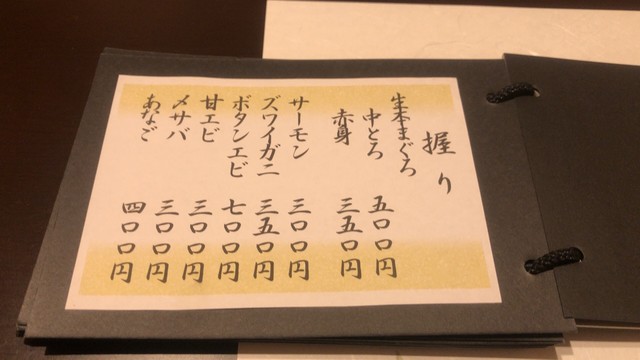 握り
生本まぐろ
中とろ 五〇〇円
赤身 三五〇円
サーモン 三〇〇円
ズワイガニ 三五〇円
ボタンエビ 七〇〇円
甘エビ 三〇〇円
〆サバ 三〇〇円
あなご 四〇〇円